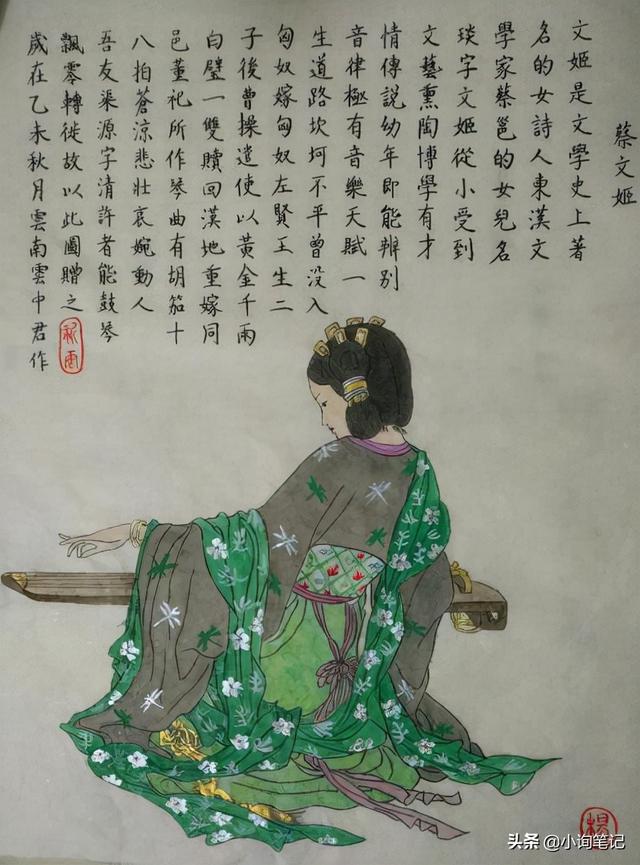 蔡文姬
文姬是文學史上著
名的女詩人東漢文
學家蔡邕的女兒名
琰字文姬從小受到
文藝熏陶博學有才
情傳説幼年即能辨别
音律極有音樂天賦一
生道路坎坷不平曾没入
匈奴嫁匈奴左賢王生二
子後曹操遣使以黃金千兩
白璧一雙贖回漢地重嫁同
邑董祀所作琴曲有胡笳十
八拍蒼涼悲壯哀婉動人
吾友渠源字清許者能鼓琴
飄零轉徙故以此圖贈之
歲在乙未秋月雲南雲中君作
楊
头条 @小询笔记